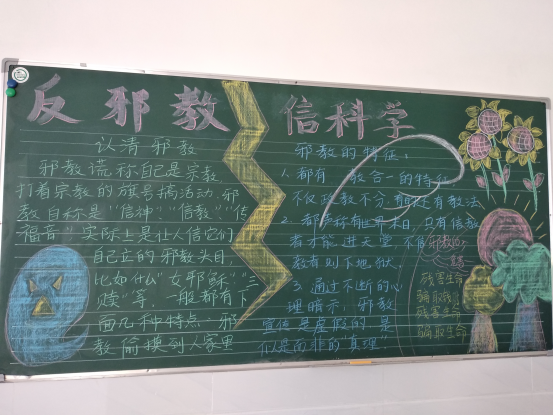 反邪教 信科学
认清邪教
邪教谎称自己是宗教
打着宗教的旗号搞活动,邪
教自称是“信神”“信教”“传
福音”实际上是让人信它们
自己立的邪教头目,
比如什么“女耶稣”“三
赎”等,一般都有下
面几种特点 邪
教偷摸到人家里
邪教的特征:
1、都有 教合一的特征
不仅政教不分,都还有教法
2、都声称有世界末日,只有信教
者才能进天堂,不信邪教的
教者则下地狱.
3、通过不断的心
理暗示,邪教
宣传是虚假的 是
似是而非的“真理”
残害生命
骗取
残害生命
骗取生命